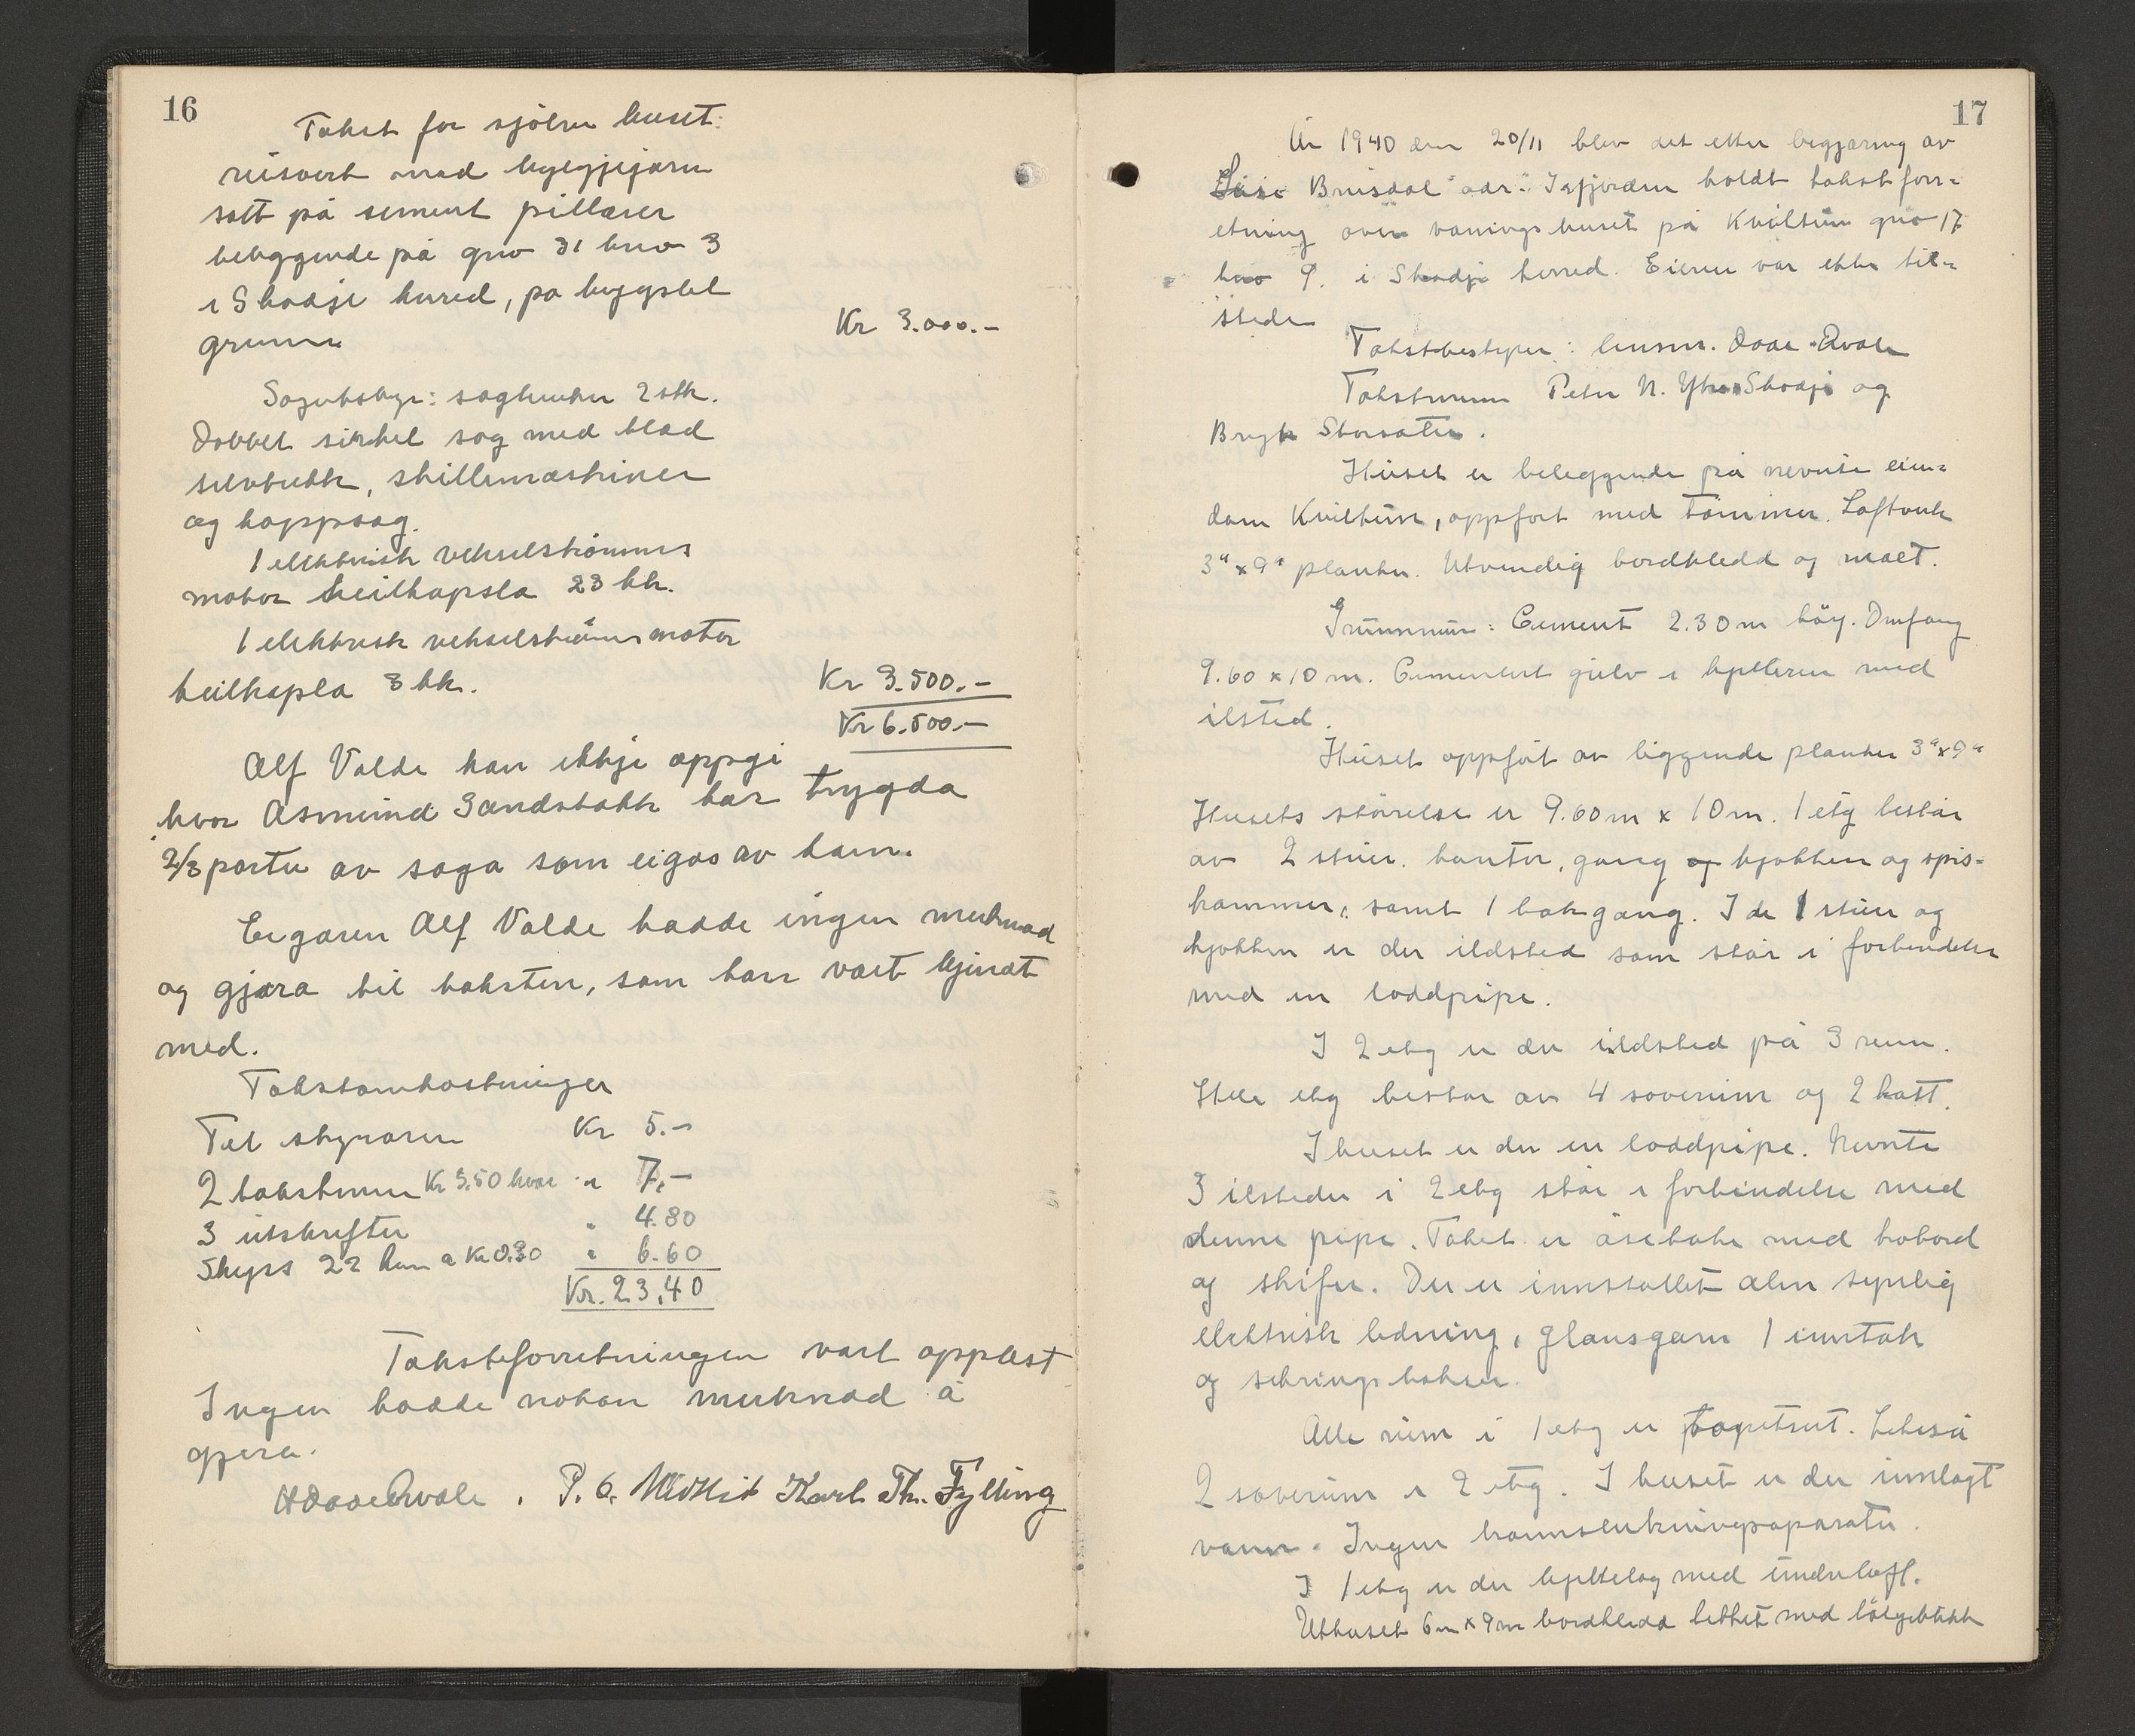 16
Takst for sjölve huset:
reisverk med bylgjejarn
sett på sement pillarer
beliggende på gno 31 bno 3
i Skodje herred, på bygslet
grunn
Kr 3.000.-
Sagutstyr: sagbenker 2 stk.
Dobbel sirkel sag med blad
selvtrekk, skillemaskiner
og kappsag.
1 elektrisk vekselstrømms
motor heilkapsla 23 hk.
1 elektrisk vekselstrøms motor
heilkapsla 3 hk.
Kr 3.500.-
Kr 6.500.-
Alf Valde kan ikkje oppgi
hvor Asmund Sandstakk har trygda
2/3 parten av saga som eigas av ham.
Eigaren Alf Valde hadde ingen merknad
og gjøra til taksten, som han vart kjendt
med.
Takstomkostninger
Til styraren Kr 5.-
2 takstmenn Kr 3.50 hver " 7.-
3 utskrifter " 4.80
Skyss 22 km a Kr 0.30 " 6.60
Kr. 23,40
Takstforretningen vart opplest
Ingen hadde nokon merknad å
gjera.
H Daae Qvale. P. O. Karl Th. Fylling
17
År 1940 den 20/11 blev det etter begjæring av
Brusdal adr: Isfjorden holdt takstforr-
etning over vaningshuset på Kviltun gno 17
bno 9. i Skodje herred. Eieren var ikke til-
stede
Takstbestyrer: lensm. Daae Qvale
Takstmenn Peter N. Ytre Skodje og
Brynh Storsæter.
Huset er beliggende på nevnte eien-
dom Kviltun, oppført med tømmer. Loftverk
3" x 9" planker. Utvendig bordkledd og malt.
Grunnmur: Cement 2.30 m høy. Omfang
9.60 x 10 m. Cementert gulv i kjelleren med
ilsted.
Huset oppført av liggende planker 3" x 9"
Husets størrelse er 9.60 m x 10 m. 1 etg består
av 2 stuer. kontor, gang og kjøkken og spis-
kammer, samt 1 bakgang. I de 1 stuer og
kjøkken er der ildsted som står i forbindelse
med en loddpipe.
I 2 etg er der ildsted på 3 rum.
Hele etg består av 4 soverum og 2 kott.
I huset er der en loddpipe. Nevnte
3 ilsteder i 2 etg står i forbindelse med
denne pipe. Taket er åsetake med trobord
og skifer. Der er innstallet alm synlig
elektrisk ledning, glansgarn 1 inntak
og sikringsbokser.
Alle rum i 1 etg er tapetsert. Likeså
2 soverum i 2 etg. I huset er der innlagt
vann. Ingen brannslukningsaparater.
I 1 etg er der bjelkelag med underloft.
Uthuset 6 m x 9 m bordkledd tekket med bølgeblikk